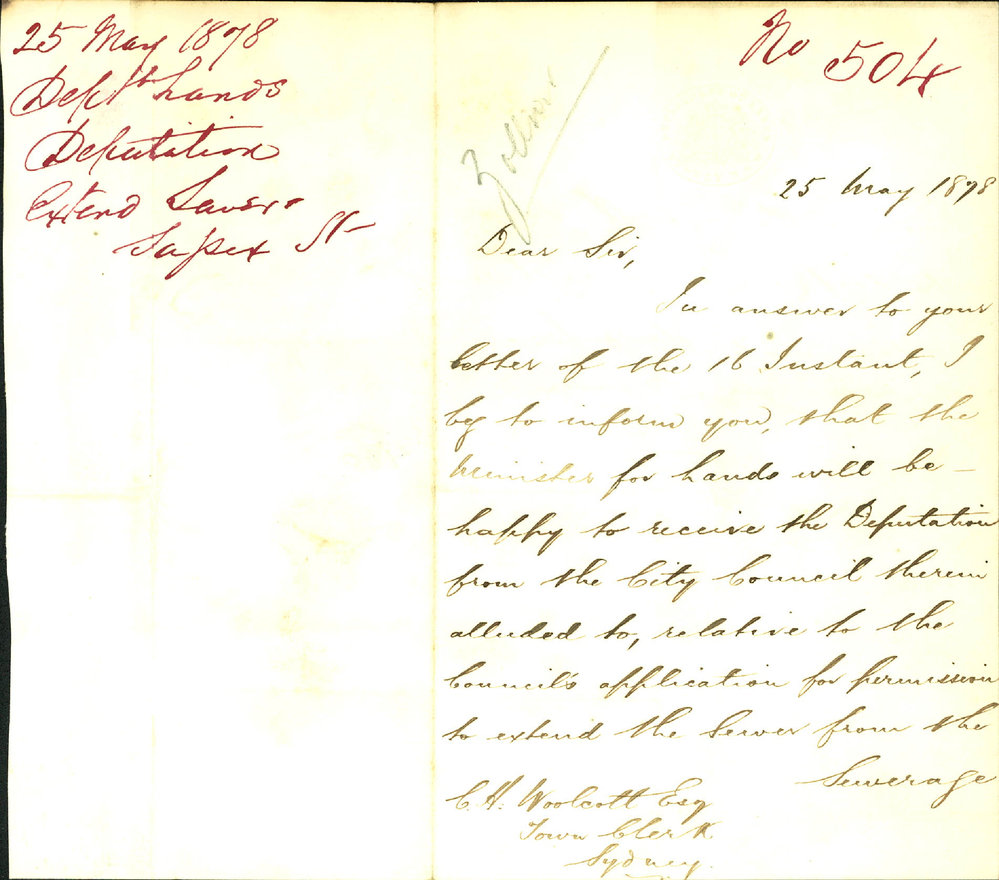 25 May 1878
Dept Lands
Deputation
Extend Sewer
St
No 504
25 May 1878
Dear Sir,
In answer to your
letter of the 16 Instant, I
beg to inform you, that the
Minister for Lands will be
happy to receive the Deputation
from the City Council therein
alluded to, relative to the
Council's application for permission
to extend the Sewer from the
Sewerage
C. H. Woolcott Esq
Town Clerk
Sydney.